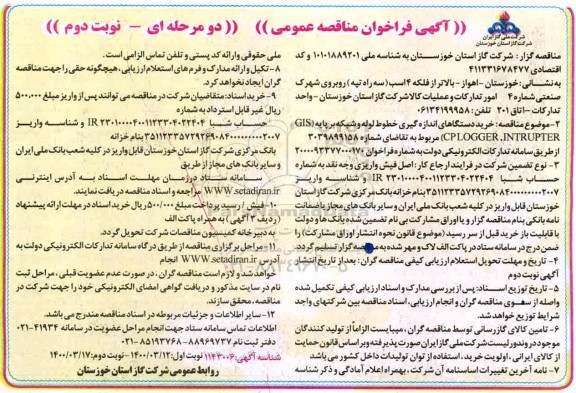 (( آگهی فراخوان مناقصه عمومی )) (( دو مرحله ای - نوبت دوم ))
شرکت ملی گاز ایران
شرکت گاز استان خوزستان
مناقصه گزار : شرکت گاز استان خوزستان به شناسه ملی ۱۰۱۰۱۸۸۹۲۰۱ و کد
اقتصادی ۴۱۱۳۳۱۶۷۸۴۷۷
به نشانی : خوزستان - اهواز - بالاتر از فلکه ۴ اسب (سه راه تپه) روبروی شهرک
صنعتی شماره ۴ امور تدارکات و عملیات کالا شرکت گاز استان خوزستان - واحد
تدارکات - اتاق ۲۰۱ تلفن : ۰۶۱۳۴۱۹۹۹۵۸
۲- موضوع مناقصه : خرید دستگاهای اندازه گیری خطوط لوله و شبکه بر پایه (GIS
CPLOGGER ,INTRUPTER) مربوط به تقاضای شماره ۳۰۳۹۸۹۹۱۵۸
از طریق سامانه تدارکات الکترونیکی دولت به شماره فراخوان ۲۰۰۰۰۹۳۳۷۷۰۰۰۱۷۰
۳- نوع تضمین شرکت در فرایند ارجاع کار : اصل فیش واریزی وجه نقد به شماره
حساب شبا IR ۲۳۰۱۰۰۰۰۴۰۰۱۱۲۳۳۰۴۰۲۲۴۰۴ و شناسه واریز
۳۵۱۱۲۳۳۵۷۲۹۲۶۹۰۸۴۰۰۰۰۰۰۰۰۰۰۲۰۰۷ بنام خانه بانک مرکزی شرکت گاز استان
خوزستان قابل واریز در کلیه شعب بانک ملی ایران و سایر بانک های مجاز یا ضمانت
نامه بانکی بنام مناقصه گزار و یا اوراق مشارکت بی نام تضمین شده بانک ها و دولت
با قابلیت باز خرید قبل از سر رسید (موضوع قانون نحوه انتشار اوراق مشارکت) را
ضمن درج در سامانه ستاد در پاکت الف لاک و مهر شده به مناقصه گزار تسلیم گردد
۴- تاریخ و مهلت تحویل استعلام ارزیابی کیفی مناقصه گران : بعد از تاریخ انتشار
آگهی نوبت دوم
۵- تاریخ توزیع اسناد : پس از بررسی مدارک و اسناد ارزیابی کیفی تکمیل شده
واصله از سوی مناقصه گران و انجام ارزیابی، اسناد مناقصه بین شرکتهای واجد
شرایط توزیع خواهد شد.
۶- تامین کالای گازرسانی توسط مناقصه گران ، میبایست الزاماً از تولید کنندگان
موجود در وندور لیست شرکت ملی گاز ایران صورت پذیرفته و بر اساس قانون حمایت
از کالای ایرانی ، اولویت خرید ، استفاده از توان تولیدات داخل کشور می باشد
۷- نامه آخرین تغییرات اساسنامه آن شرکت ، بهمراه اعلام آمادگی و ذکر شناسه
ملی حقوقی و ارائه کد پستی و تلفن تماس الزامی است.
۸- تکیل و ارائه مدارک و فرم های استعلام ارزیابی، هیچگونه حقی را جهت مناقصه
گران ایجاد نخواهد کرد.
۹- خرید اسناد: متقاضیان شرکت در مناقصه می توانند پس از واریز مبلغ ۵۰۰,۰۰۰
ریال غیر قابل استرداد به شماره
حساب شبا IR ۲۳۰۱۰۰۰۰۴۰۰۱۱۲۳۳۰۴۰۲۲۴۰۴ و شناسه واریز
۳۵۱۱۲۳۳۵۷۲۹۲۶۹۰۸۴۰۰۰۰۰۰۰۰۰۰۲۰۰۷ بنام خانه
بانک مرکزی شرکت گاز استان خوزستان قابل واریز در کلیه شعب بانک ملی ایران
و سایر بانک های مجاز از طریق
سامانه ستاد در زمان مهلت اسناد به آدرس اینترنتی
WWW.setadiran.ir مراجعه و اسناد مناقصه دریافت نمایند.
۱۰- فیش / رسید پرداخت مبلغ ۵۰۰,۰۰۰ ریال خرید اسناد در مهلت ارائه پیشنهاد
(ردیف ۴ آگهی) به همراه پاکت الف
به دبیرخانه کمیسیون مناقصات شرکت تحویل گردد.
۱۱- مراحل برگزاری مناقصه از طریق درگاه سامانه تدارکات الکترونیکی دولت به
آدرس WWW.setadiran.ir انجام
خواهد شد و لازم است مناقصه گران ، در صورت عدم عضویت قبلی ، مراحل ثبت
نام در سایت مذکور و دریافت گواهی امضای الکترونیکی خود را جهت شرکت در
مناقصه، محقق سازند.
۱۲- سایر اطلاعات و جزئیات مربوطه در اسناد مناقصه مندرج می باشد.
اطلاعات تماس سامانه ستاد جهت انجام مراحل عضویت در سامانه ۴۱۹۳۴-۰۲۱
دفتر ثبت نام ۸۸۹۶۹۷۳۷ - ۸۵۱۹۳۷۶۸-۰۲۱
شناسه آگهی: ۱۱۴۳۰۰۶ نوبت اول: ۱۴۰۰/۰۳/۱۲ - نوبت دوم: ۱۴۰۰/۰۳/۱۷
روابط عمومی شرکت گاز استان خوزستان